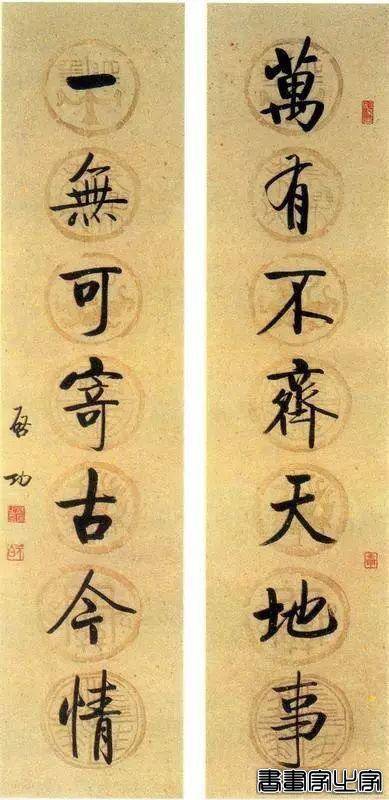 萬有不齊天地事
一無可寄古今情
啓功
書畫家之家